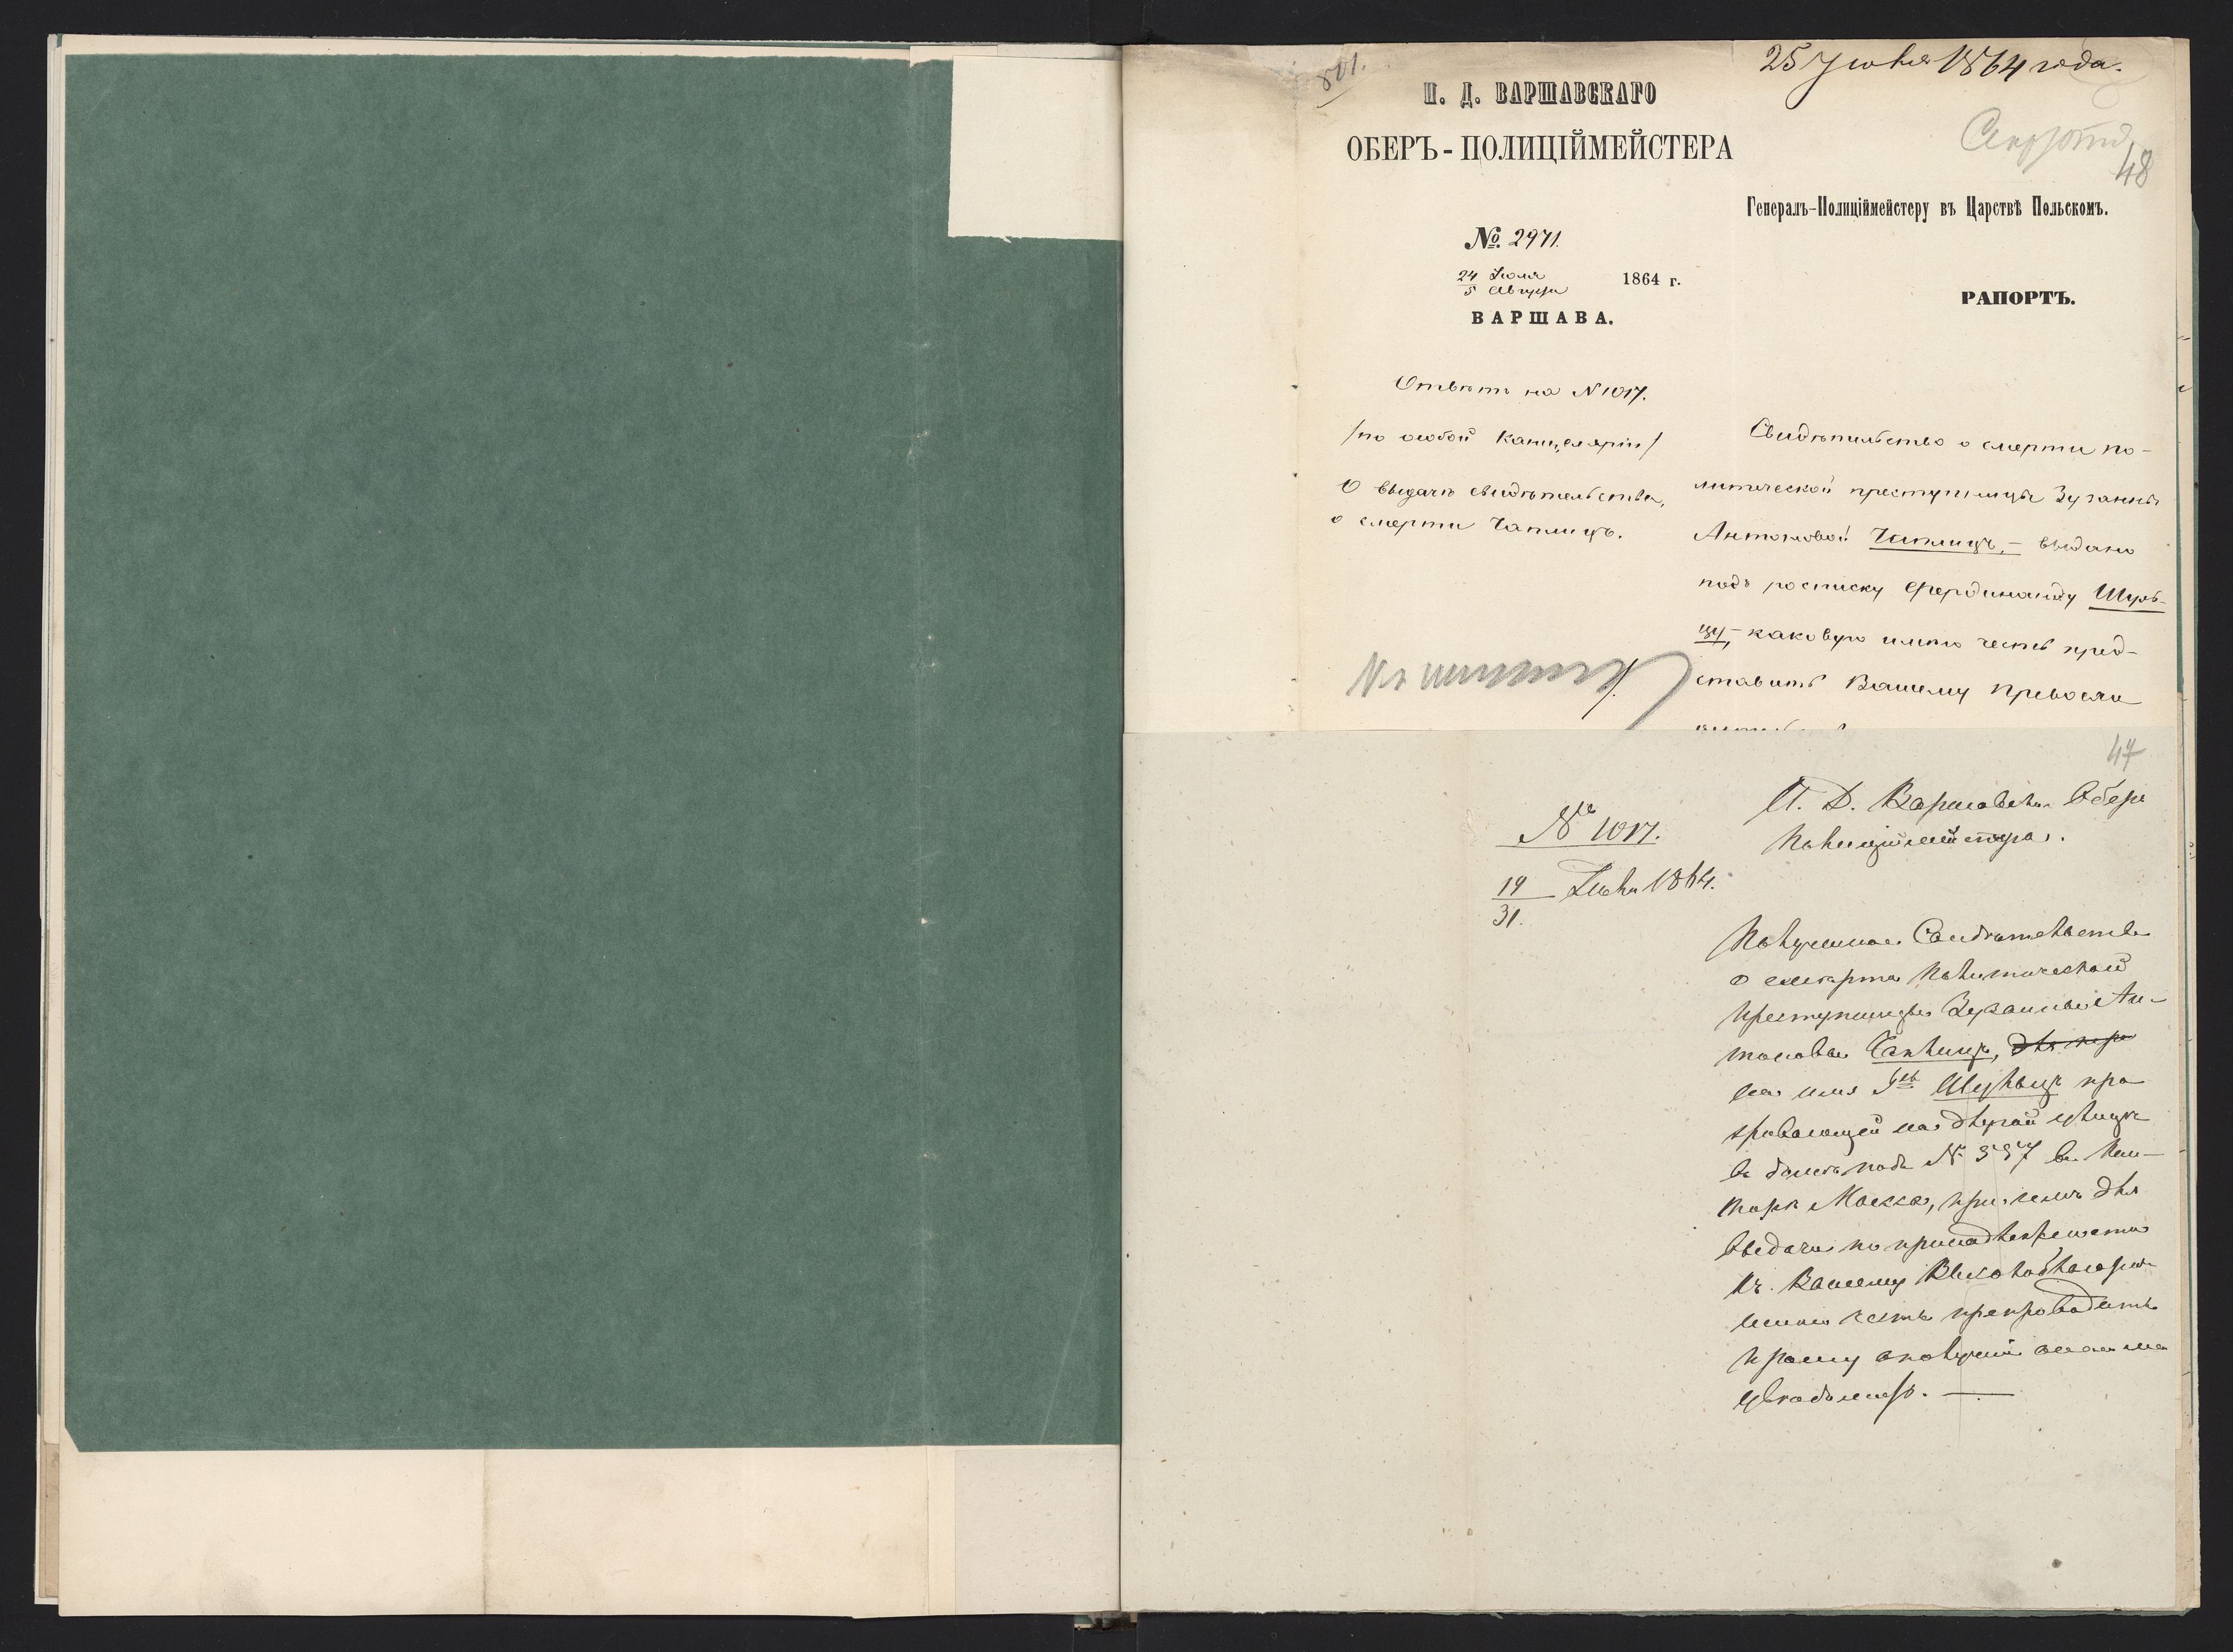 801.
25 Іюля 1864 года.
И. Д. ВАРШАВСКАГО
ОБЕРЪ-ПОЛИЦІЙМЕЙСТЕРА
48
Генералъ-Полиціймейстеру въ Царствѣ Польскомъ.
№ 2971.
24 Іюля
5 Августа
1864 г.
ВАРШАВА.
РАПОРТЪ.
Отвѣтъ на № 1017.
/по особой Канцеляріи/
О выдачѣ свидѣтельства,
о смерти Чаплицъ.
Свидѣтельство о смерти по-
литической преступницы Зузанны
Антоновой Чаплицъ, – выдано
подъ росписку Фердинанду Шуль-
цу, – каковую имѣю честь пред-
ставить Вашему Превосхо
47
№ 1017.
19 Іюля 1864.
31.
И. Д. Варшавскаго Оберъ
Полиціймейстера.
Полученное Свидѣтельство
о смерти Политической
преступницы Зузанны Ан-
тоновой Чаплицъ,
на имя Шульцъ про
живающей на Долгой улицѣ
въ домѣ подъ № 557 въ Кон-
торѣ при семъ для
выдачи по принадлежности
Вашему Высокоблагород
имѣю честь препроводить
прошу о полученіи оного
увѣдомить. —